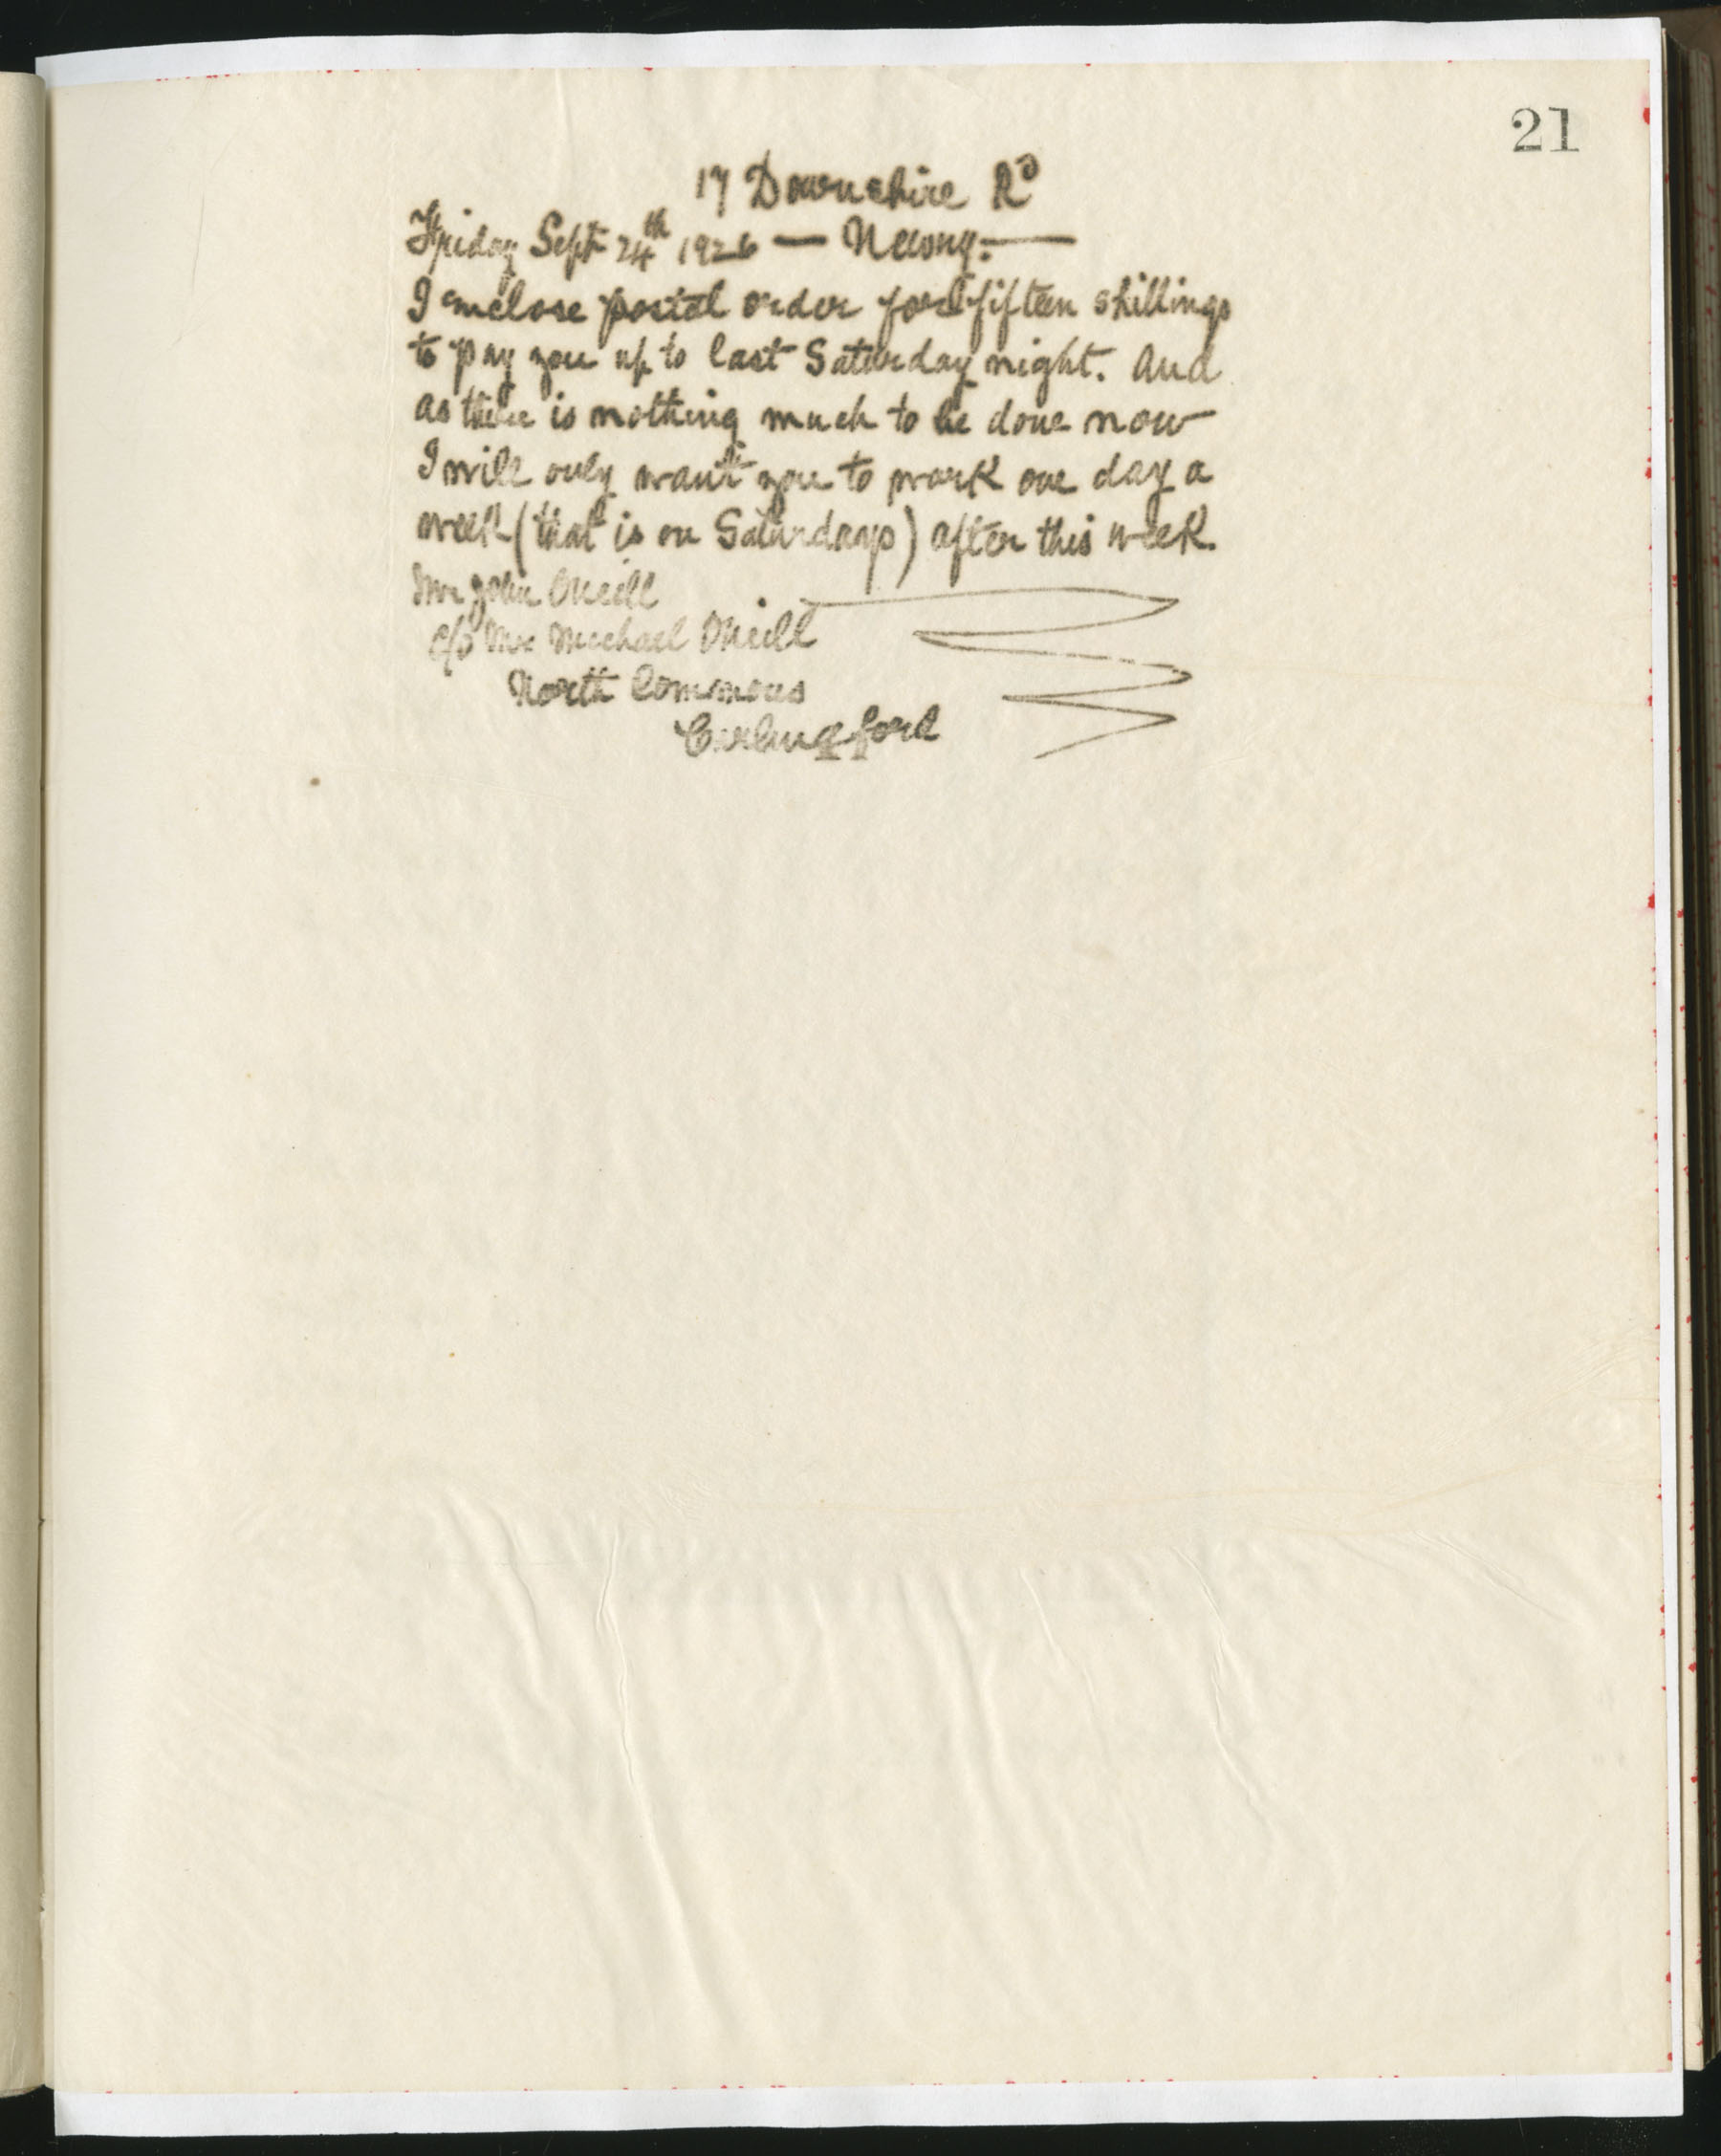 21
17 Downshire Rd
Friday Sept 24th 1926 — Newry. —
I enclose postal order for fifteen shillings
to pay you up to last Saturday night. And
as there is nothing much to be done now
I will only want you to work one day a
week (that is on Saturdays) after this week.
Mr John ONeill
c/o Mr Michael ONeill
North Commons
Carlingford